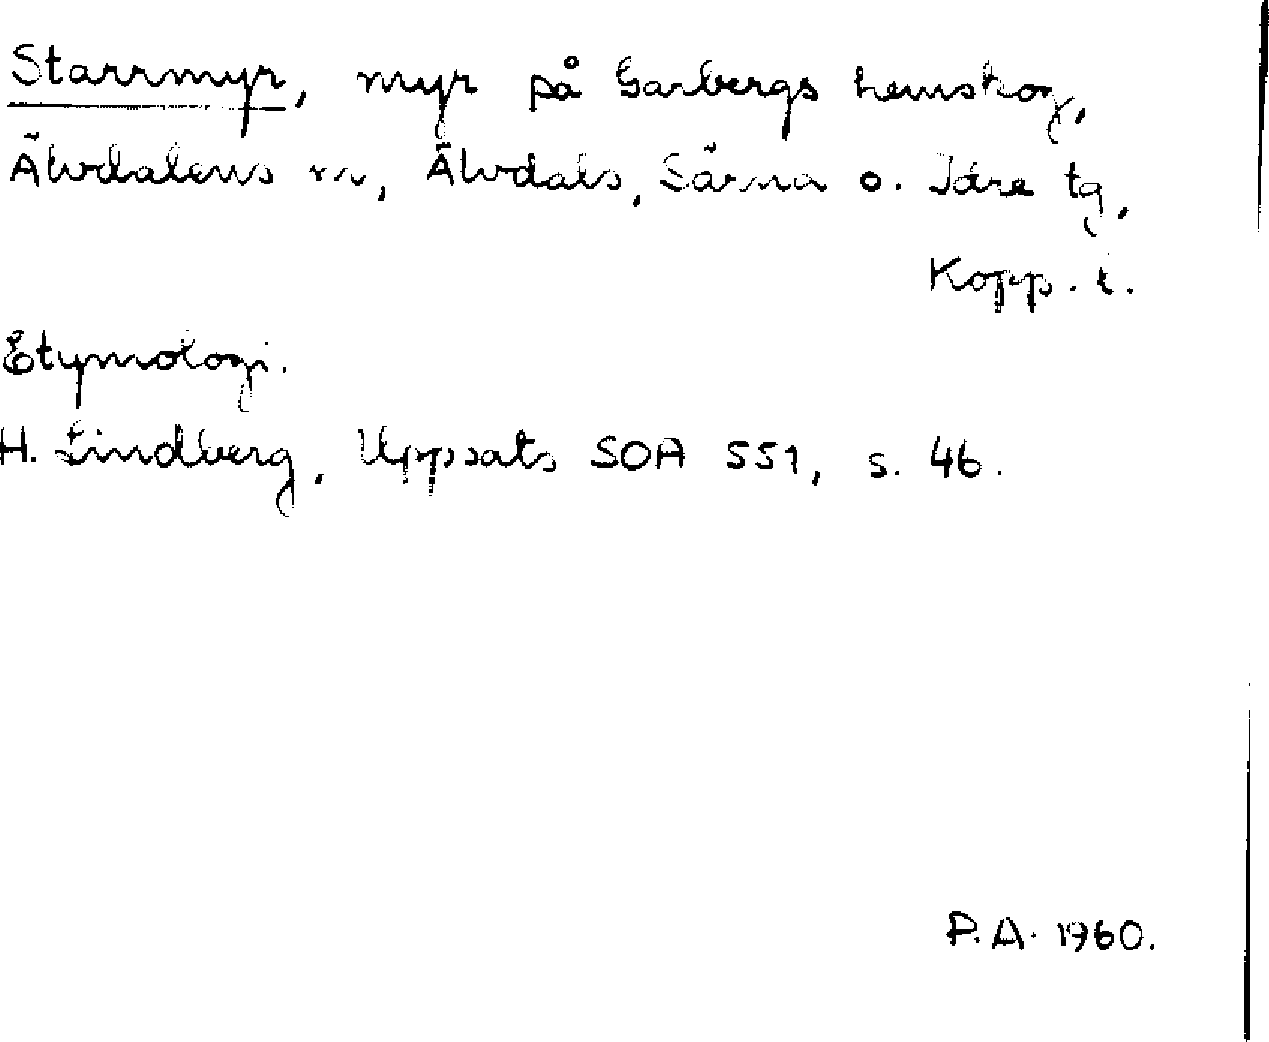 Starrmyr, myr på Garbergs hemskog,
Älvdalens sn, Älvdals, Särna o. Idre tg,
Kopp. l.
Etymologi.
H. Lindberg, Uppsats SOA 551, s. 46.
P.A. 1960.